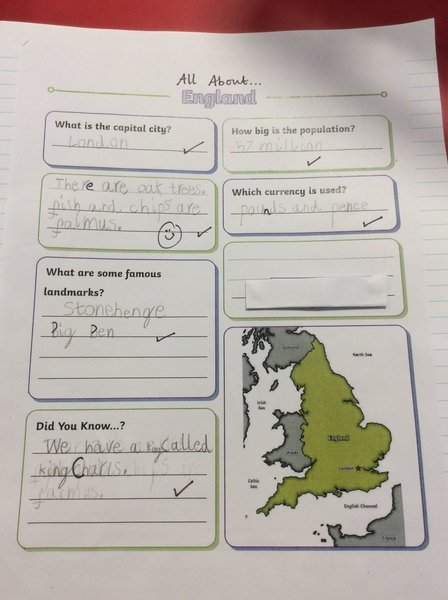 All About...
England
What is the capital city?
London
How big is the population?
57 million
There are oak trees.
fish and chips are
falmus.
Which currency is used?
pounds and pence
What are some famous
landmarks?
Stonehenge
Big Ben
Did You Know...?
We have a king called
king Charls.
falmus.
Scotland
North Sea
Irish
Sea
Wales
England
London
Celtic
Sea
English Channel
France